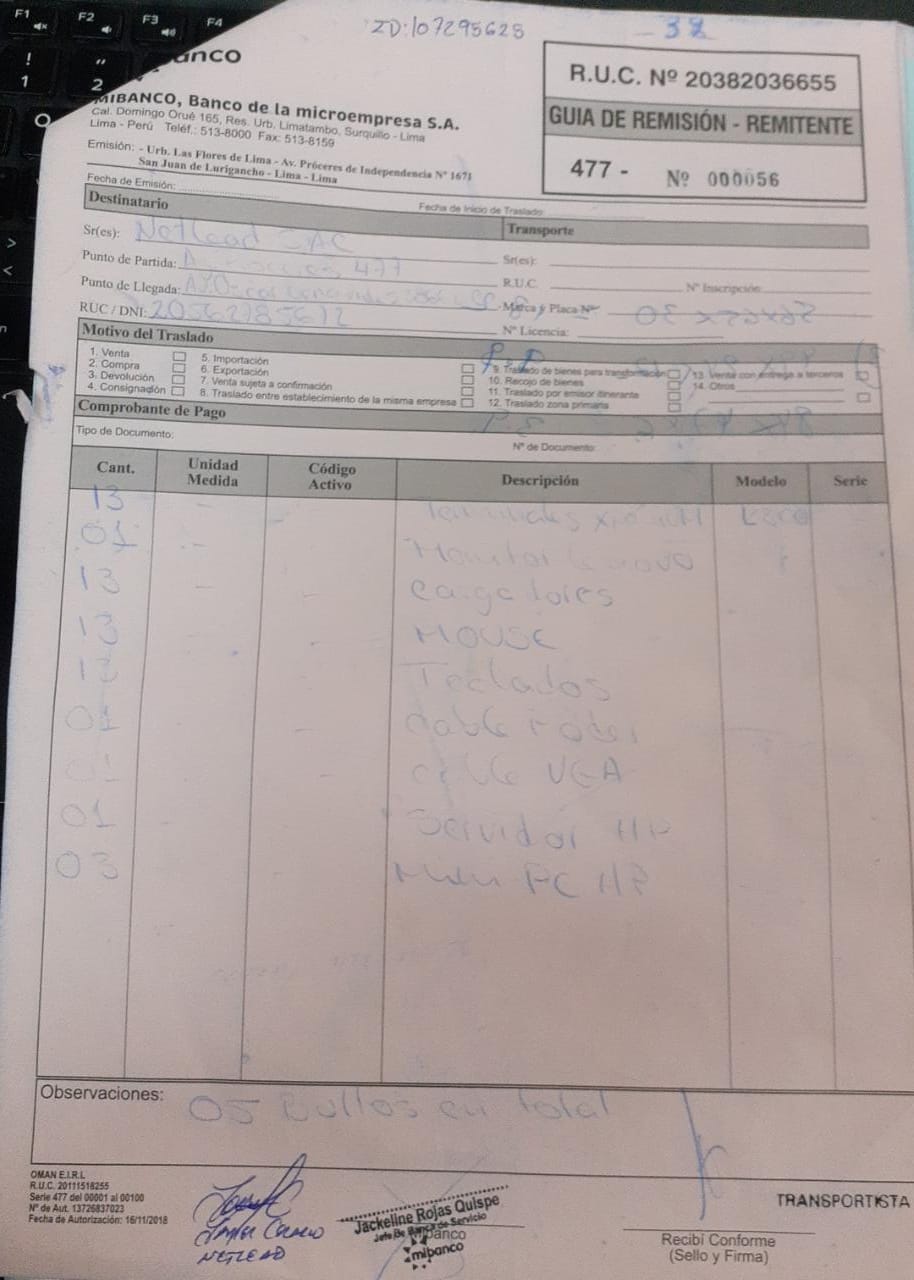 F1 F2 F3 F4
! 1 " 2
ZD:107295625
38
banco
MIBANCO, Banco de la microempresa S.A.
Cal. Domingo Orué 165, Res. Urb. Limatambo, Surquillo - Lima
Lima - Perú Teléf.: 513-8000 Fax: 513-8159
Emisión: - Urb. Las Flores de Lima - Av. Próceres de Independencia Nº 1671
San Juan de Lurigancho - Lima - Lima
R.U.C. Nº 20382036655
GUIA DE REMISIÓN - REMITENTE
477 - Nº 000056
Fecha de Emisión:
Fecha de Inicio de Traslado
Destinatario
Transporte
Sr(es): Netlead SAC
Sr(es):
Punto de Partida: 477
R.U.C. Nº Inscripción:
Punto de Llegada:
Marca y Placa Nº
RUC / DNI: 20562785612
Nº Licencia:
Motivo del Traslado
1. Venta
2. Compra
3. Devolución
4. Consignación
5. Importación
6. Exportación
7. Venta sujeta a confirmación
8. Traslado entre establecimiento de la misma empresa
9. Traslado de bienes para transformación
10. Recojo de bienes
11. Traslado por emisor itinerante
12. Traslado zona primaria
13. Venta con entrega a terceros
14. Otros
Comprobante de Pago
Tipo de Documento:
Nº de Documento:
Cant. Unidad Medida Código Activo Descripción Modelo Serie
13 - - Terminales
01 - Monitor Lenovo
13 - - cargadores
13 - - MOUSE
13 Teclados
01 - cable Poder
01 - cable VGA
01 - Servidor HP
03 Mini PC HP
Observaciones: 05 Bultos en total
OMAN E.I.R.L
R.U.C. 20111518255
Serie 477 del 00001 al 00100
Nº de Aut. 13726837023
Fecha de Autorización: 16/11/2018
NETLEAD
Jackeline Rojas Quispe
Jefe de Banca de Servicio
Mibanco
mibanco
TRANSPORTISTA
Recibí Conforme
(Sello y Firma)